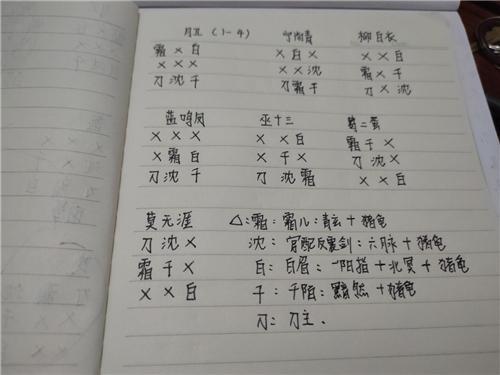 月孔(1-4) 宁雨青 柳白衣
霜 × 白 × 白 × × × 白
× × × × × 沈 霜 × 千
刀 沈 千 刀 霜 千 刀 × 沈
蓝鸣凤 巫十三 葛二蛋
× × × × × 白 霜 千 ×
× 霜 白 × 千 × 刀 沈 ×
刀 沈 千 刀 沈 霜 × × 白
莫无涯 △:霜:霜儿:青云+猪龟
刀 沈 × 沈:官配反震剑:六脉+猪龟
霜 千 × 白:白眉:一阳指+北冥+猪龟
× × 白 千:千陌:黯然+猪龟
刀:刀主.